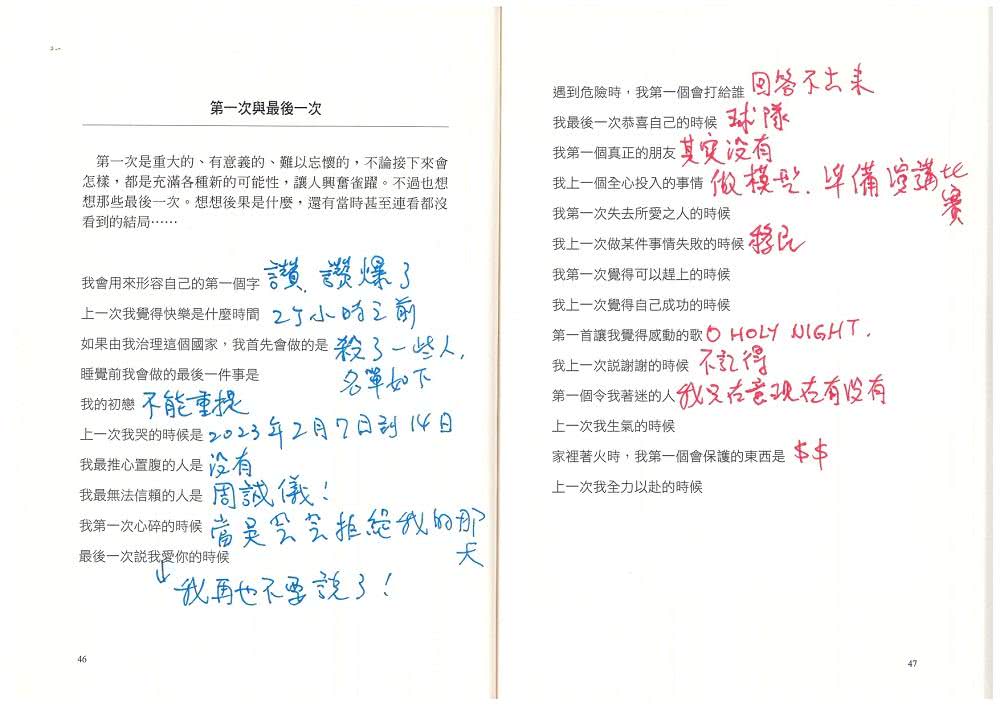 第一次與最後一次
第一次是重大的、有意義的、難以忘懷的，不論接下來會
怎樣，都是充滿各種新的可能性，讓人興奮雀躍。不過也想
想那些最後一次。想想後果是什麼，還有當時甚至連看都沒
看到的結局……
我會用來形容自己的第一個字 讚，讚爆了
上一次我覺得快樂是什麼時間 25小時之前
如果由我治理這個國家，我首先會做的是 殺了一些人，
名單如下
睡覺前我會做的最後一件事是
我的初戀 不能重提
上一次我哭的時候是 2023年2月7日到14日
我最推心置腹的人是 沒有
我最無法信賴的人是 周誠儀！
我第一次心碎的時候 當是 拒絕我的那
天
最後一次說我愛你的時候
我再也不要說了！
46
遇到危險時，我第一個會打給誰 回答不出來
我最後一次恭喜自己的時候 球隊
我第一個真正的朋友 其实没有
我上一個全心投入的事情 做模型．準備演講比
賽
我第一次失去所愛之人的時候
我上一次做某件事情失敗的時候 移民
我第一次覺得可以趕上的時候
我上一次覺得自己成功的時候
第一首讓我覺得感動的歌 O HOLY NIGHT.
我上一次說謝謝的時候 不記得
第一個令我著迷的人 我只在意現在有没有
上一次我生氣的時候
家裡著火時，我第一個會保護的東西是 $$
上一次我全力以赴的時候
47